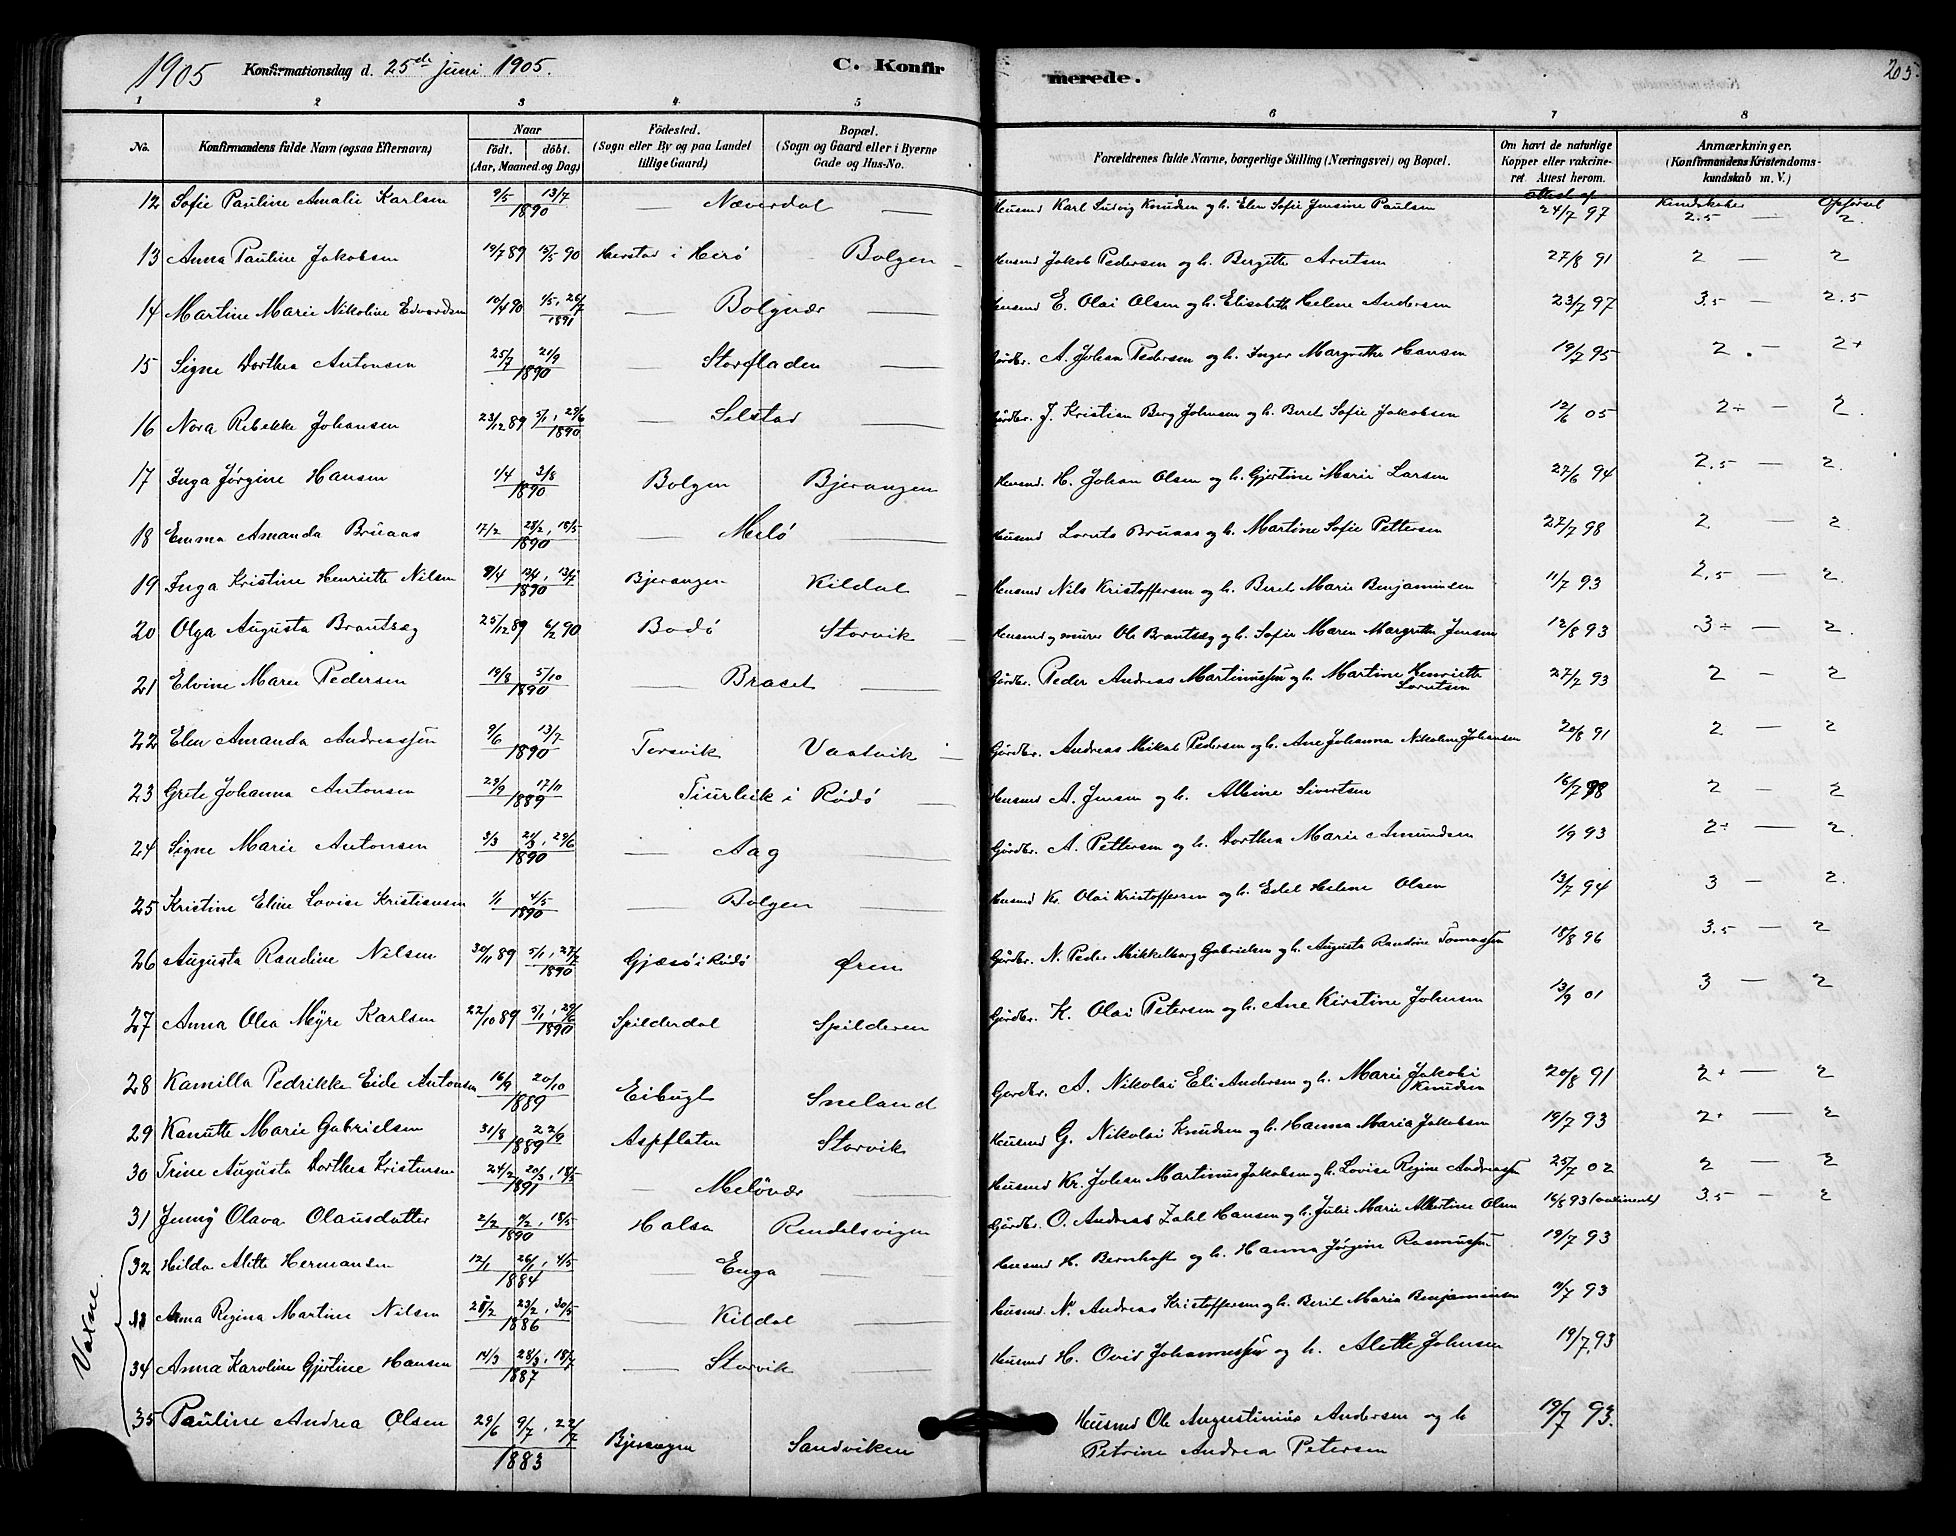 1905 Konfirmationsdag d. 25de juni 1905. C. Konfir merede. 205.
1 2 3 4. 5 6 7 8
No. Konfirmandens fulde Navn (ogsaa Efternavn) Naar födt. döbt. (Aar, Maaned og Dag) Födested. (Sogn eller By og paa Landet tillige Gaard) Bopæl. (Sogn og Gaard eller i Byerne Gade og Hus-No. Forældrenes fulde Navne, borgerlige Stilling (Næringsvei) og Bopæl. Om havt de naturlige Kopper eller vakcineret Attest herom. Anmærkninger. (Konfirmandens Kristendomskundskab m. V.)
12 Sofie Pauline Amalie Karlsen 9/5 13/7 1890 — Næverdal — Husmd Karl Ludvig Knudsen og h. Elen Sofie Jensine Paulsen attest af 24/7 97 Kundskaber 2.5 — Opførsel 2.
13 Anna Pauline Jakobsen 19/7 89 15/5 90 Herstad i Herö Bolgen Husmd Jakob Pedersen og h. Bergitte Arntsen 27/8 91 2 — 2
14 Martine Marie Nikoline Edvardsen 10/4 90 1/5, 26/7 1891 — Bolgvær — Husmd E. Olai Olsen og h. Elisabeth Helene Andersen 23/7 97 3.5 — 2.5
15 Signe Dorthea Antonsen 25/7 21/9 1890 — Storfladen — Gårdbr. A. Johan Pedersen og h. Inger Margrethe Hansen 19/7 95 2. — 2+
16 Nora Rebekke Johansen 23/12 89 5/1, 29/6 1890 — Selstad — Gårdbr. J. Kristian Berg Johnsen og h. Beret Sofie Jakobsen 12/6 05 2÷ — 2.
17 Inga Jørgine Hansen 1/4 3/8 1890 Bolgen Bjerangen Husmd. H. Johan Olsen og h. Gjertine Marie Larsen 27/6 94 2.5 — 2.
18 Emma Amanda Bruaas 17/2 28/2, 18/5 1890 — Melö — Husmd Lornts Bruaas og h. Martine Sofie Pettersen 27/7 98 2 — 2.
19 Inga Kristine Henriette Nilsen 9/4 12/4, 13/7 1890 Bjerangen Kildal Husmd Nils Kristoffersen og h. Beret Marie Benjaminsen 11/7 93 2.5 — 2.
20 Olga Augusta Brautseg 25/12 89 6/2 90 Bodö Storvik Husmd og murer Ole Brautseg og h. Sofie Maren Margrethe Jensen 12/8 93 3÷ — 2.
21 Elvine Marie Pedersen 19/8 5/10 1890 — Braset — Gårdbr. Peder Andreas Martinussen og h. Martine Henriette Lorntsen 27/7 93 2 — 2
22 Elen Amanda Andreassen 9/6 13/7 1890 Torsvik Vaatvik Gårdbr. Andreas Mikal Pedersen og h. Ane Johanna Nikoline Johansen 20/8 91 2 — 2
23 Grete Johanna Antonsen 29/9 17/11 1889 Tiurleik i Rödö — Husmd A. Jensen og h. Albine Sivertsen 16/7 98 2 — 2
24 Signe Marie Antonsen 3/3 21/3, 29/6 1890 — Aag — Gårdbr. A. Pettersen og h. Dorthea Marie Amundsen 1/9 93 2÷ — 2.
25 Kristine Eline Lovise Kristiansen 1/1 4/5 1890 — Bolgen — Husmd Kr. Olai Kristoffersen og h. Edel Helene Olsen 13/7 94 3 — 2.
26 Augusta Randine Nilsen 30/11 89 5/1, 27/7 1890 Gjæsö i Rödö Ören Gårdbr. N. Peder Mikkelborg Gabrielsen og h. Augusta Randine Tomassen 18/8 96 3.5 — 2
27 Anna Olea Myre Karlsen 22/10 89 5/1, 29/6 1890 Spilderdal Spilderen Gårdbr. K. Olai Petersen og h. Ane Kirstine Johnsen 13/9 01 3 — 2
28 Kamilla Pedrikke Eide Antonsen 16/9 20/10 1889 Eibugt Sneland Gardbr. A. Nikolai Eli Andersen og h. Marie Jakobi Knudsen 20/8 91 2+ — 2
29 Kanutte Marie Gabrielsen 31/8 22/9 1889 Aspflaten Storvik Husmd G. Nikolai Knudsen og h. Hanna Maria Jakobsen 19/7 93 2+ — 2
30 Trine Augusta Dorthea Kristensen 24/2 20/3, 18/5 1891 — Melövær — Husmd Kr. Johan Martinus Jakobsen og h. Lovise Regine Andreassen 25/7 02 2 — 2
31 Jenny Olava Olausdatter 2/2 9/2, 18/5 1890 Halsa Rendalsvigen Gårdbr. O. Andreas Zahl Hansen og h. Julie Marie Albertine Olsen 16/8 93 3.5 — 2
Voxne.
32 Hilda Alette Hermansen 12/1 26/1, 4/5 1884 — Enga — Husmd H. Bernhoft og h. Hanna Jørgine Rasmussen 19/7 93
33 Anna Regina Martine Nilsen 28/2 23/2, 30/5 1886 — Kildal — Husmd. N. Andreas Kristoffersen og h. Berit Maria Benjaminsen 11/7 93
34 Anna Karoline Gjertine Hansen 14/3 28/3, 18/7 1887 — Storvik — Husmd H. Ovid Johannessen og h. Alette Johnsen 19/7.93
35 Pauline Andrea Olsen 29/6 9/7, 22/7 1883 Bjerangen Sandviken Husmd Ole Augustinius Andersen og h Petrine Andrea Petersen 19/7 93.